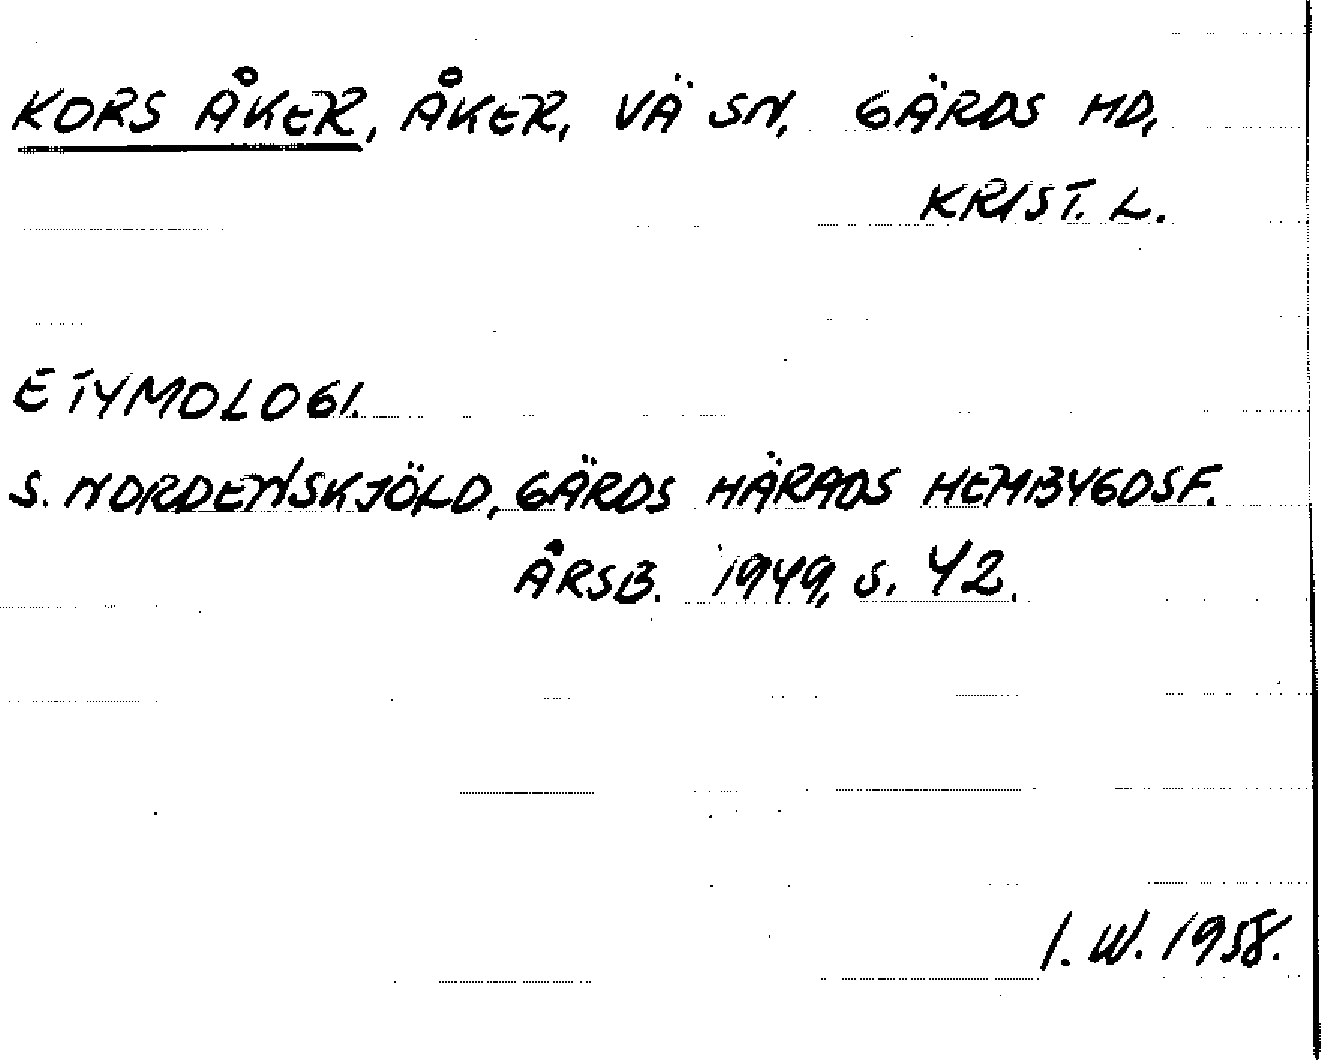 KORS ÅKER, ÅKER, VÄ SN, GÄRDS HD,
KRIST. L.
ETYMOLOGI.
S. NORDENSKJÖLD, GÄRDS HÄRADS HEMBYGDSF.
ÅRSB. 1949, S. 42.
I. W. 1958.